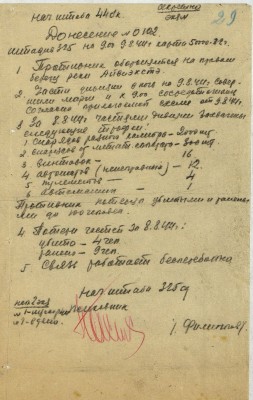 Секретно
29
нач штаба 44ск
экз №
Донесение № 0102
штадив 325 на 9.00 9.8.44г карта 50000-42г.
1. Противник обороняется на правом
берегу реки Айвиэкста.
2. Части дивизии к 9.00 на 9.8.44г. совер-
шили марш и к 9.00 сосредоточены
согласно прилагаемой схемы от 9.8.44г.
3. За 8.8.44г частями дивизии захвачены
следующие трофеи:
1. Снарядов разного калибра - 2000 шт.
3. винтовок - 16
4 автомашин (неисправных) - 12.
5 пулеметов - 4
6 - 1
Противник потерял убитыми и ранены-
ми до 100 человек.
4. Потери частей за 8.8.44г:
убито - 4 чел
ранено - 9 чел.
5 Связь работает бесперебойно
нач штаба 325сд
полковник